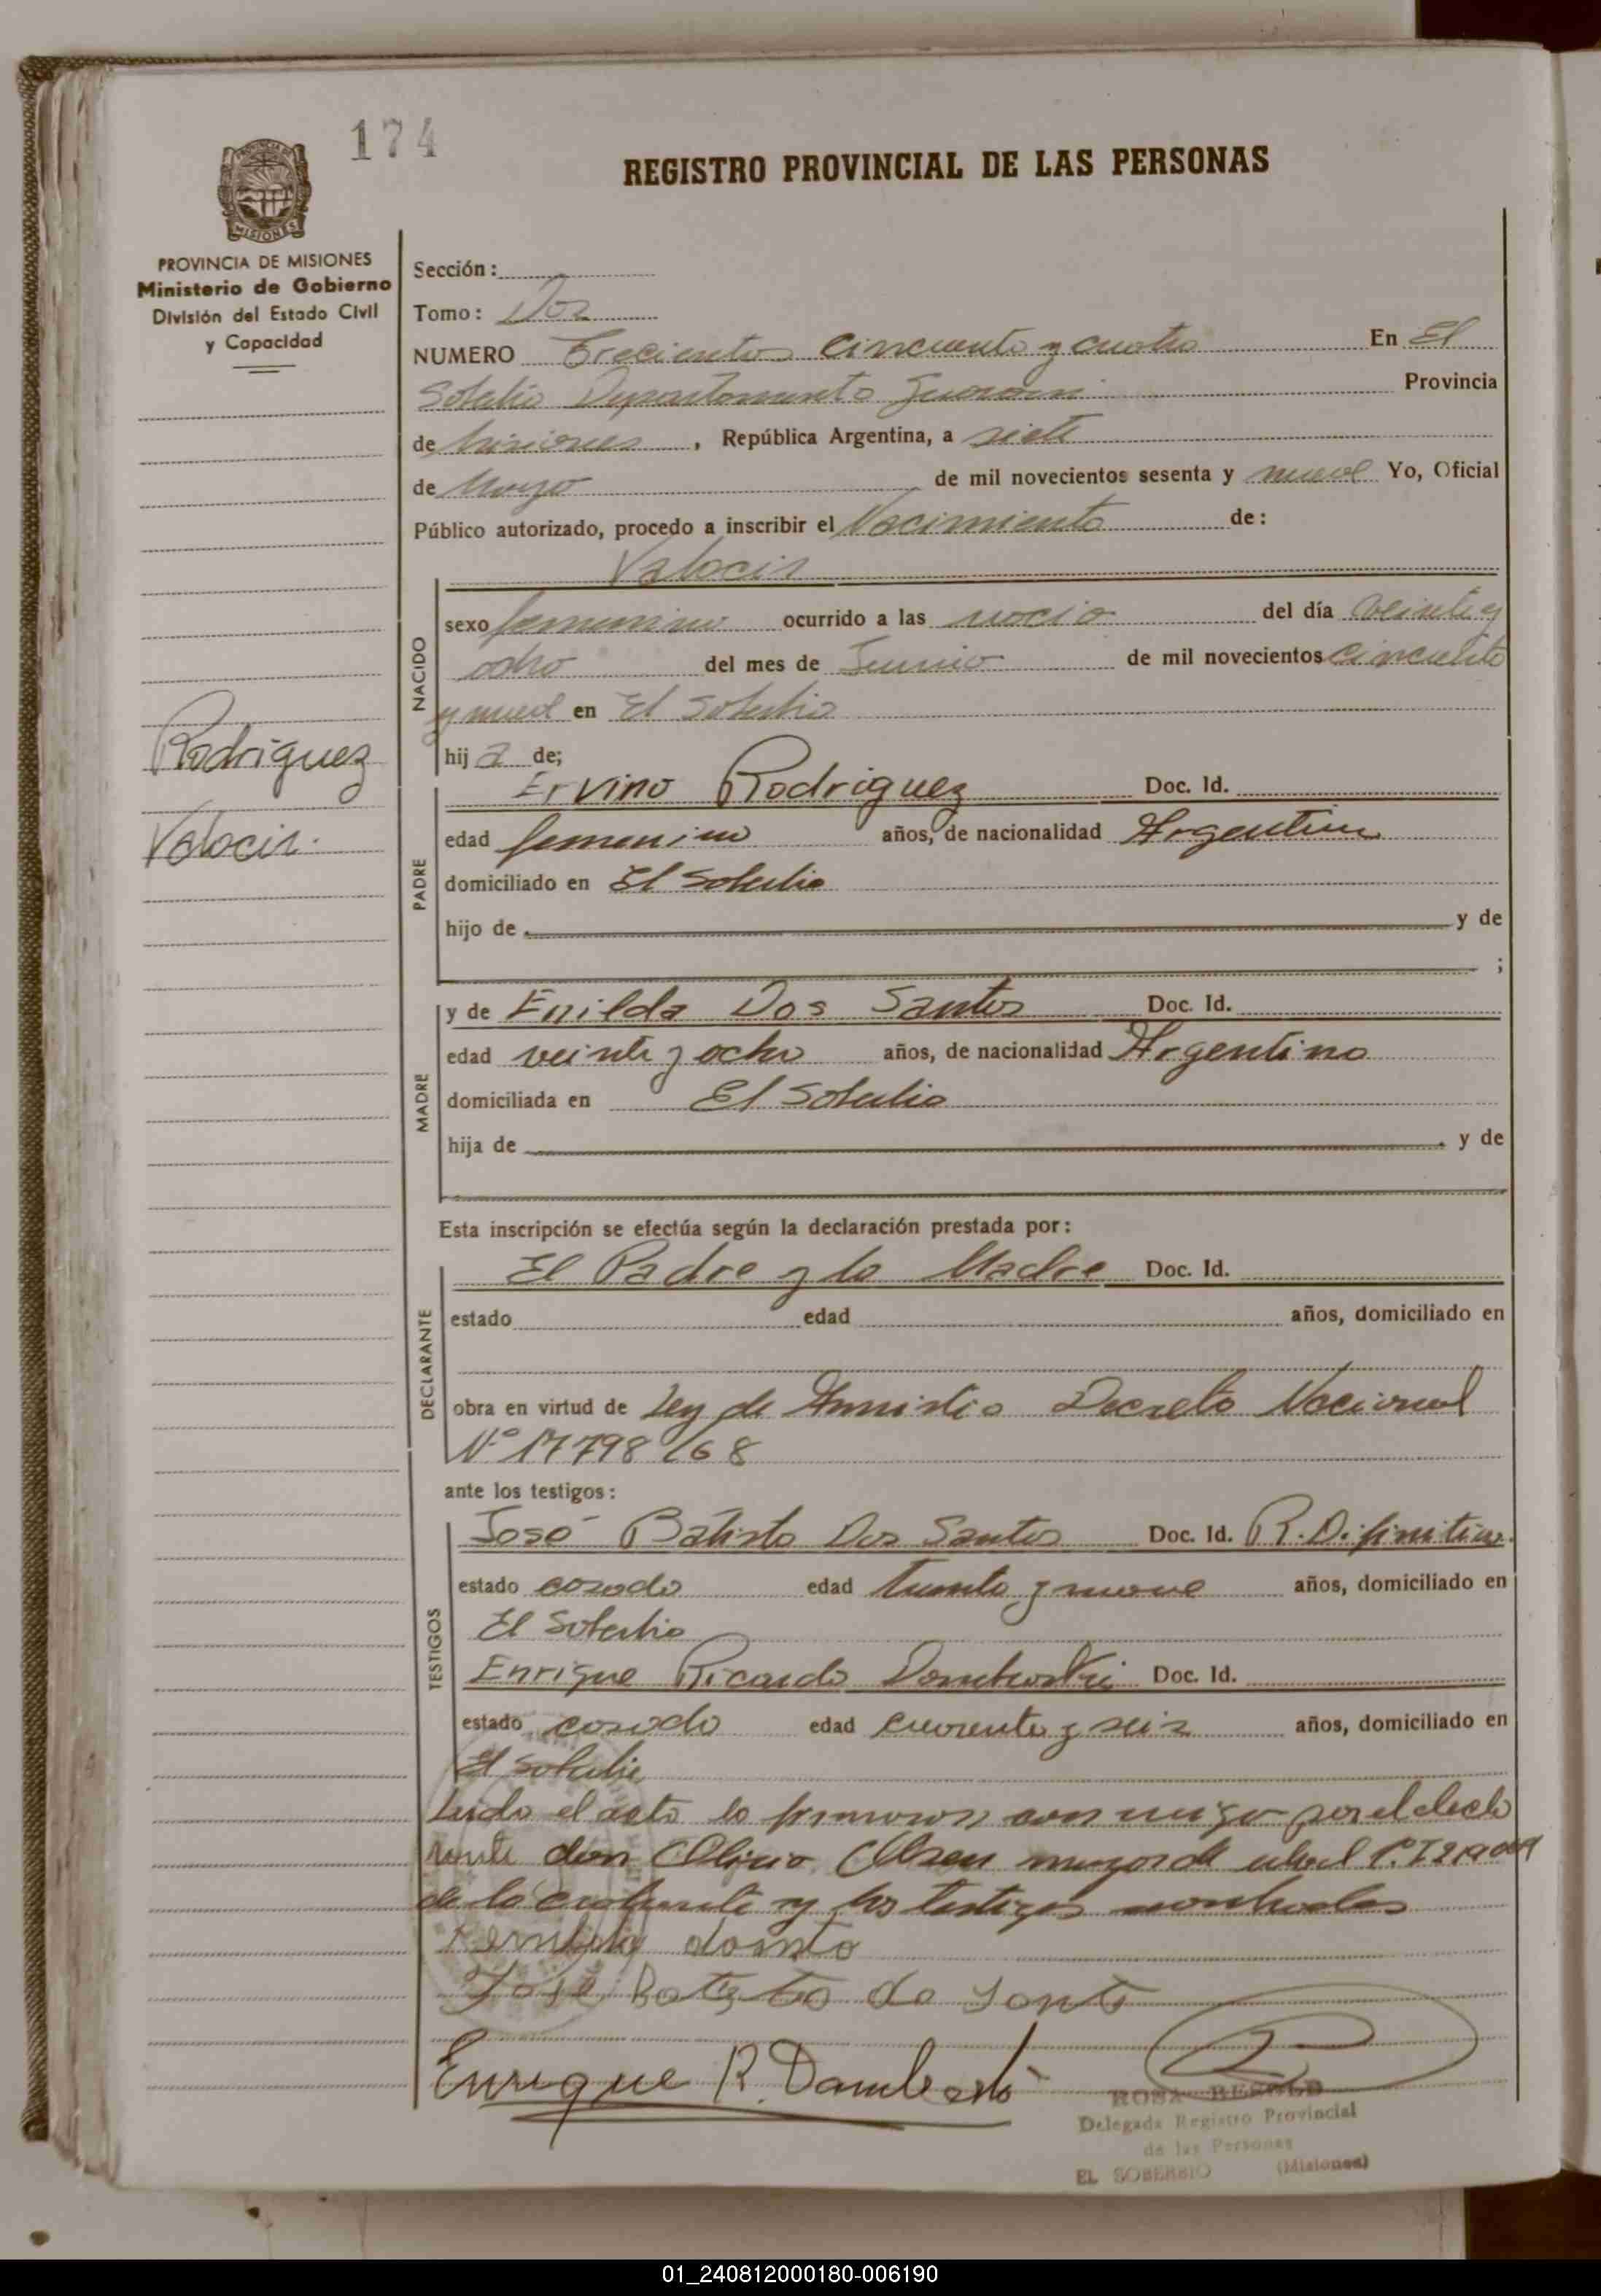 174
REGISTRO PROVINCIAL DE LAS PERSONAS
PROVINCIA DE
MISIONES
PROVINCIA DE MISIONES
Ministerio de Gobierno
División del Estado Civil
y Capacidad
Sección:
Tomo: Dos
NUMERO Trecientos cincuenta y cuatro En El
Soberbio Departamento Guarani Provincia
de Misiones, República Argentina, a siete
de Mayo de mil novecientos sesenta y nueve Yo, Oficial
Público autorizado, procedo a inscribir el Nacimiento de:
Valocir
NACIDO
sexo femenino ocurrido a las del día veinte y
ocho del mes de Junio de mil novecientos cincuenta
y nueve en El Soberbio
hij a de;
Rodriguez
Valocir.
PADRE
Ervino Rodriguez Doc. Id.
edad femenino años, de nacionalidad Argentino
domiciliado en El Soberbio
hijo de y de
;
MADRE
y de Enilda Dos Santos Doc. Id.
edad veinte y ocho años, de nacionalidad Argentina
domiciliada en El Soberbio
hija de y de
Esta inscripción se efectúa según la declaración prestada por:
DECLARANTE
El Padre y la Madre Doc. Id.
estado edad años, domiciliado en
obra en virtud de Ley de Amnistia Decreto Nacional
Nº 17798/68
ante los testigos:
TESTIGOS
José Batista Dos Santos Doc. Id. R. Difinitivo.
estado casado edad treinta y nueve años, domiciliado en
El Soberbio
Enrique Ricardo Dombroski Doc. Id.
estado casado edad cuarenta y seis años, domiciliado en
El Soberbio
Leido el acta la firmaron conmigo por el decla
rante don Olsen mayor de edad
de la y los testigos nombrados
José Batista do Santo
Enrique R.
ROSA
Delegada Registro Provincial
de las Personas
EL SOBERBIO (Misiones)
01_240812000180-006190